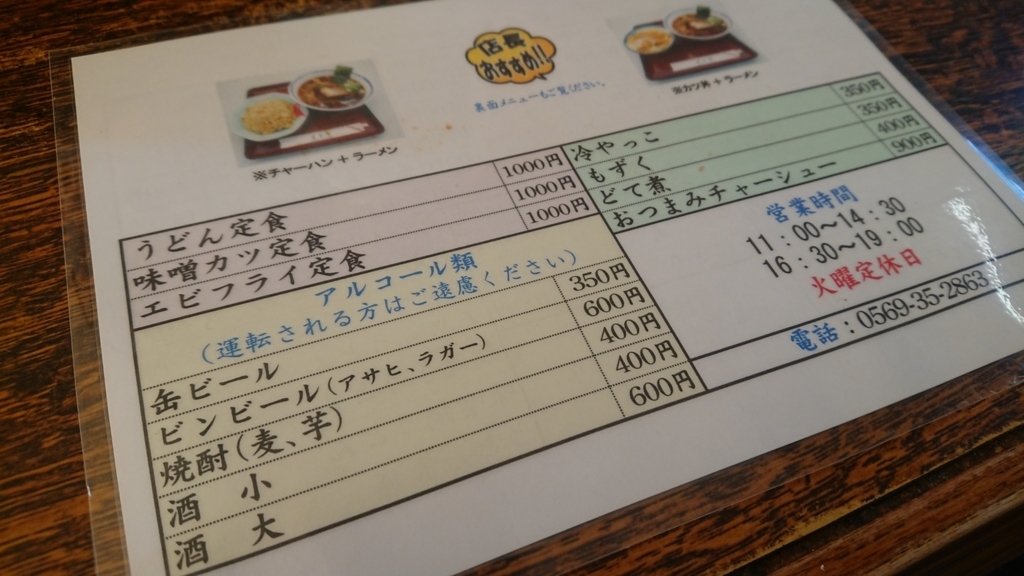 店長
おすすめ!!
裏面メニューもご覧ください。
※チャーハン+ラーメン
※カツ丼+ラーメン
うどん定食 1000円
味噌カツ定食 1000円
エビフライ定食 1000円
冷やっこ 350円
もずく 350円
どて煮 400円
おつまみチャーシュー 900円
アルコール類
(運転される方はご遠慮ください)
缶ビール 350円
ビンビール(アサヒ、ラガー) 600円
焼酎(麦、芋) 400円
酒 小 400円
酒 大 600円
営業時間
11:00~14:30
16:30~19:00
火曜定休日
電話:0569-35-2863